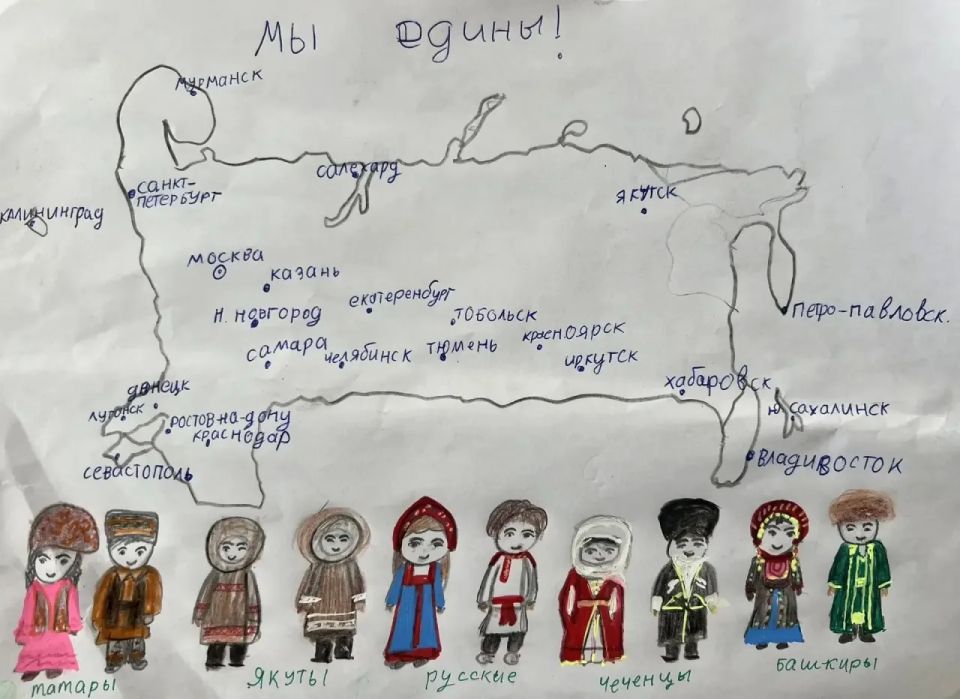 Мы едины!
Мурманск
Салехард
Санкт-
Петербург
Якутск
Калининград
Москва
Казань
Екотеренбург
Н. Новгород
Тобольск
Петро-Павловск.
Красноярск
Самара
Челябинск
Тюмень
Иркутск
Хабаровск
Донецк
Луганск
Ю. Сахалинск
Ростов-на-Дону
Краснодар
Севастополь
Владивосток
татары
Якуты
русские
чеченцы
башкиры